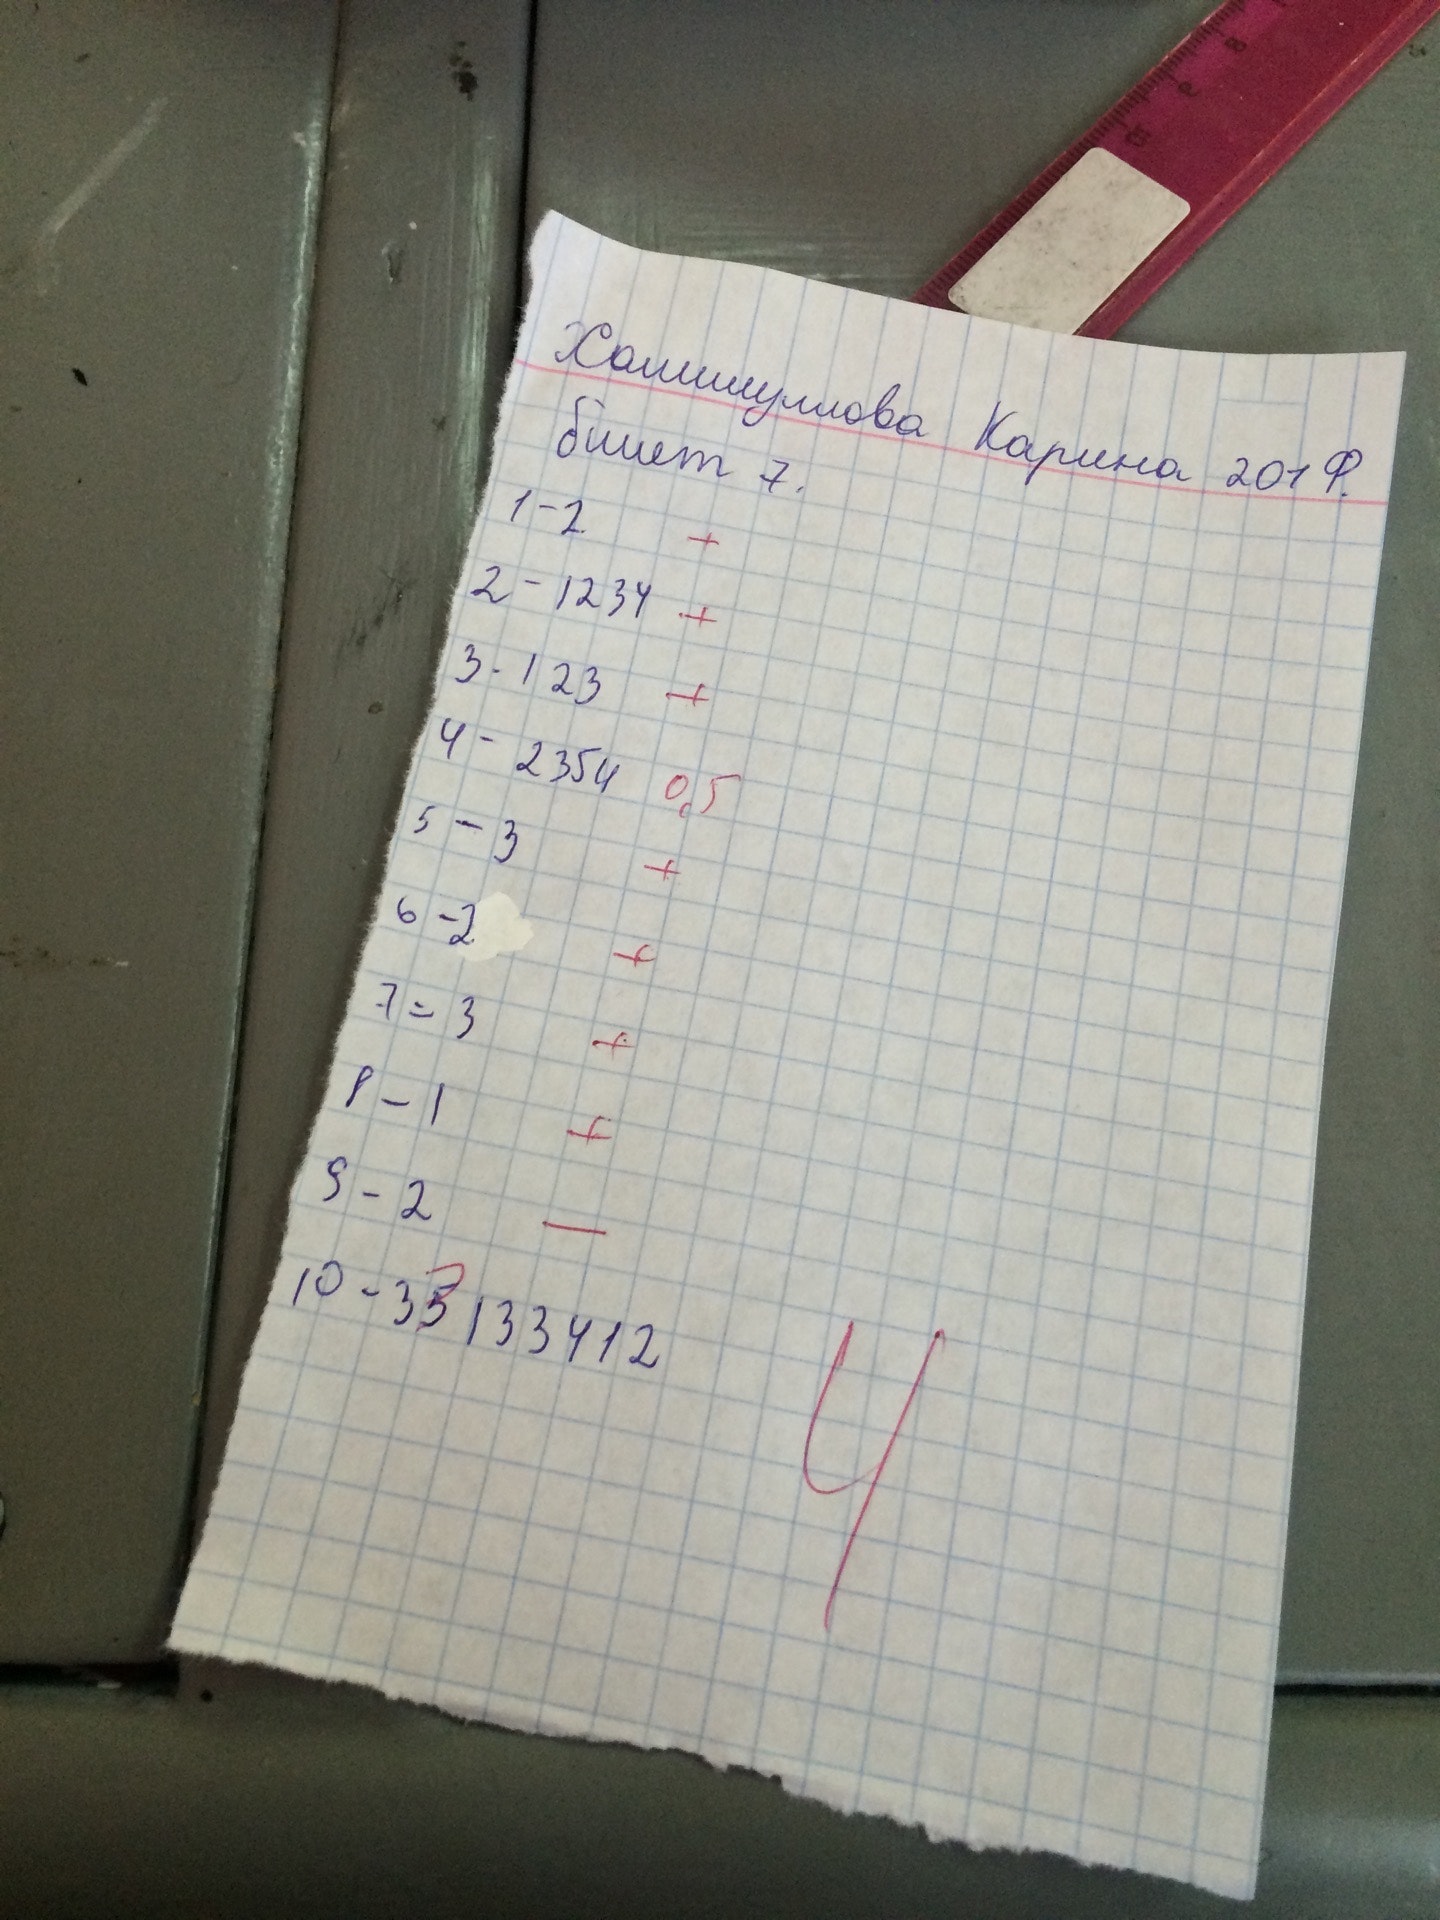 Карина 201 Ф.
билет 7.
1-2 +
2 - 1234 +
3 - 123 +
4 - 2354 0,5
5 - 3 +
6 - 2 +
7 = 3 +
8 - 1 +
9 - 2 —
10 - 33133412
4